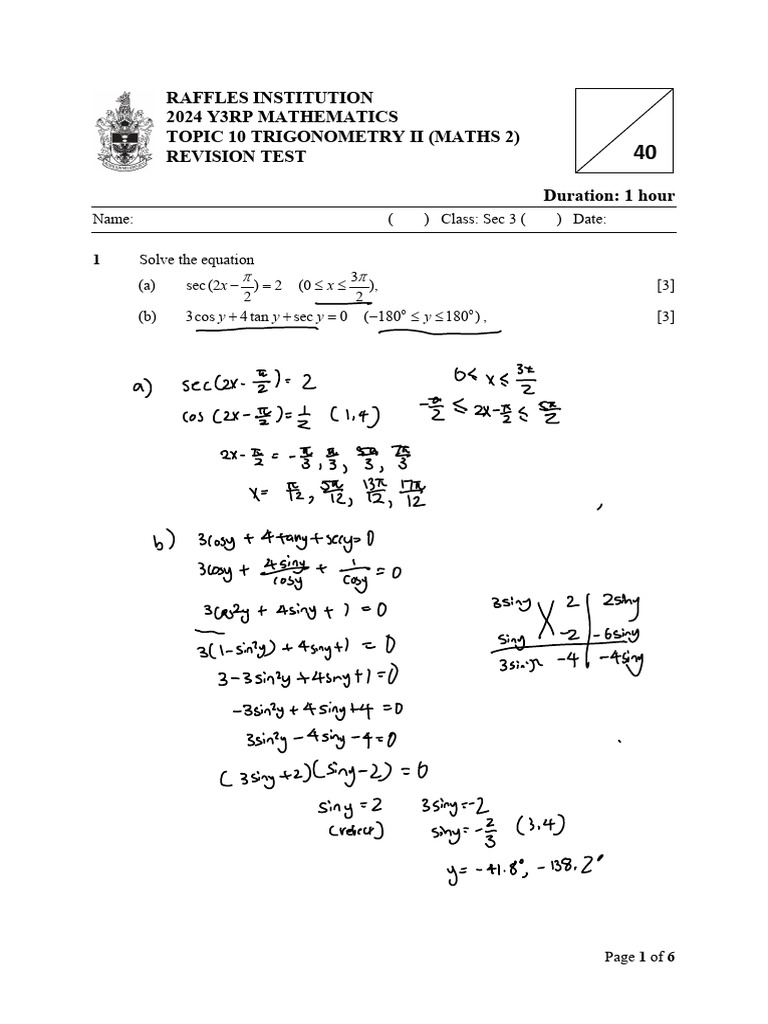 RAFFLES INSTITUTION
2024 Y3RP MATHEMATICS
TOPIC 10 TRIGONOMETRY II (MATHS 2)
REVISION TEST
40
Duration: 1 hour
Name: ( ) Class: Sec 3 ( ) Date:
1 Solve the equation
(a) sec (2x − π/2) = 2 (0 ≤ x ≤ 3π/2), [3]
(b) 3 cos y + 4 tan y + sec y = 0 (−180° ≤ y ≤ 180°) , [3]
a) sec(2x - π/2) = 2 0 ≤ x ≤ 3π/2
cos (2x - π/2) = 1/2 (1,4) -π/2 ≤ 2x - π/2 ≤ 5π/2
2x - π/2 = -π/3, π/3, 5π/3, 7π/3
x = π/12, 5π/12, 13π/12, 17π/12
b) 3cosy + 4tany + secy = 0
3cosy + 4siny/cosy + 1/cosy = 0
3cos²y + 4siny + 1 = 0
3(1-sin²y) + 4siny+1 = 0
3-3sin²y+4siny+1=0
-3sin²y + 4siny+4=0
3sin²y - 4siny - 4=0
(3siny+2)(siny-2) = 0
siny = 2 3siny=-2
(reject) siny=-2/3 (3,4)
y= -41.8°, -138.2°
3siny 2 2siny
siny -2 -6siny
3sin²y -4 -4siny
Page 1 of 6